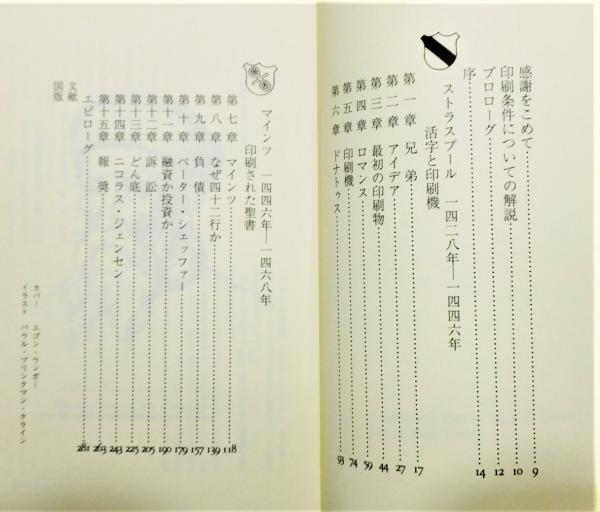 感謝をこめて 9
印刷条件についての解説 10
プロローグ 12
序 14
ストラスブール 一四二八年―一四四六年
活字と印刷機
第一章 兄弟 17
第二章 アイデア 27
第三章 最初の印刷物 44
第四章 ロマンス 59
第五章 印刷機 74
第六章 ドナトゥス 93
マインツ 一四四六年―一四六八年
印刷された聖書
第七章 マインツ 118
第八章 なぜ四十二行か 139
第九章 負債 157
第十章 ペーター・シェッファー 179
第十一章 融資か投資か 190
第十二章 訴訟 205
第十三章 どん底 225
第十四章 ニコラス・ジェンセン 243
第十五章 報奨 263
エピローグ 281
文献
図版
カバー エゴン・ウンガー
イラスト パウル・ブリンクマン・クライン